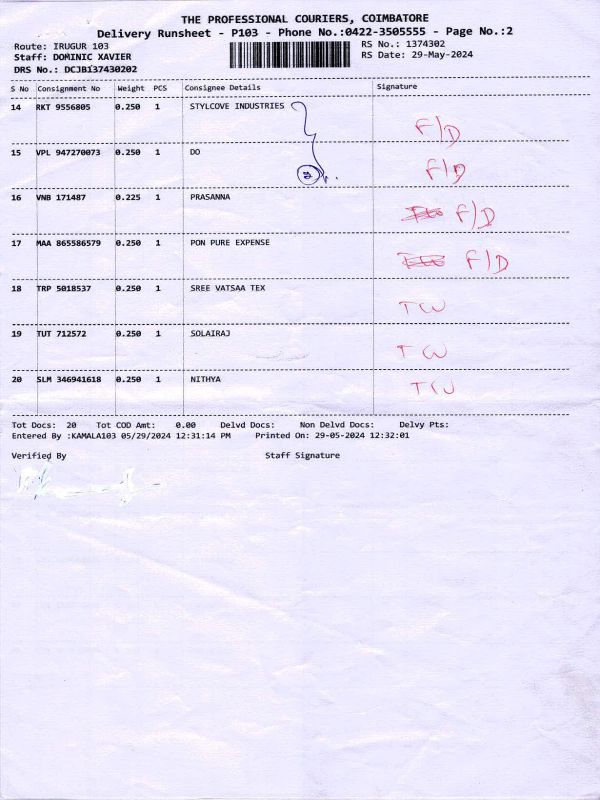 THE PROFESSIONAL COURIERS, COIMBATORE
Delivery Runsheet - P103 - Phone No.:0422-3505555 - Page No.:2
Route: IRUGUR 103 RS No.: 1374302
Staff: DOMINIC XAVIER RS Date: 29-May-2024
DRS No.: DCJB137430202
S No Consignment No Weight PCS Consignee Details Signature
14 RKT 9556805 0.250 1 STYLCOVE INDUSTRIES F/D
15 VPL 947270073 0.250 1 DO 2 F/D
16 VNB 171487 0.225 1 PRASANNA F/D
17 MAA 865586579 0.250 1 PON PURE EXPENSE F/D
18 TRP 5018537 0.250 1 SREE VATSAA TEX TCW
19 TUT 712572 0.250 1 SOLAIRAJ TCW
20 SLM 346941618 0.250 1 NITHYA TCW
Tot Docs: 20 Tot COD Amt: 0.00 Delvd Docs: Non Delvd Docs: Delvy Pts:
Entered By :KAMALA103 05/29/2024 12:31:14 PM Printed On: 29-05-2024 12:32:01
Verified By Staff Signature